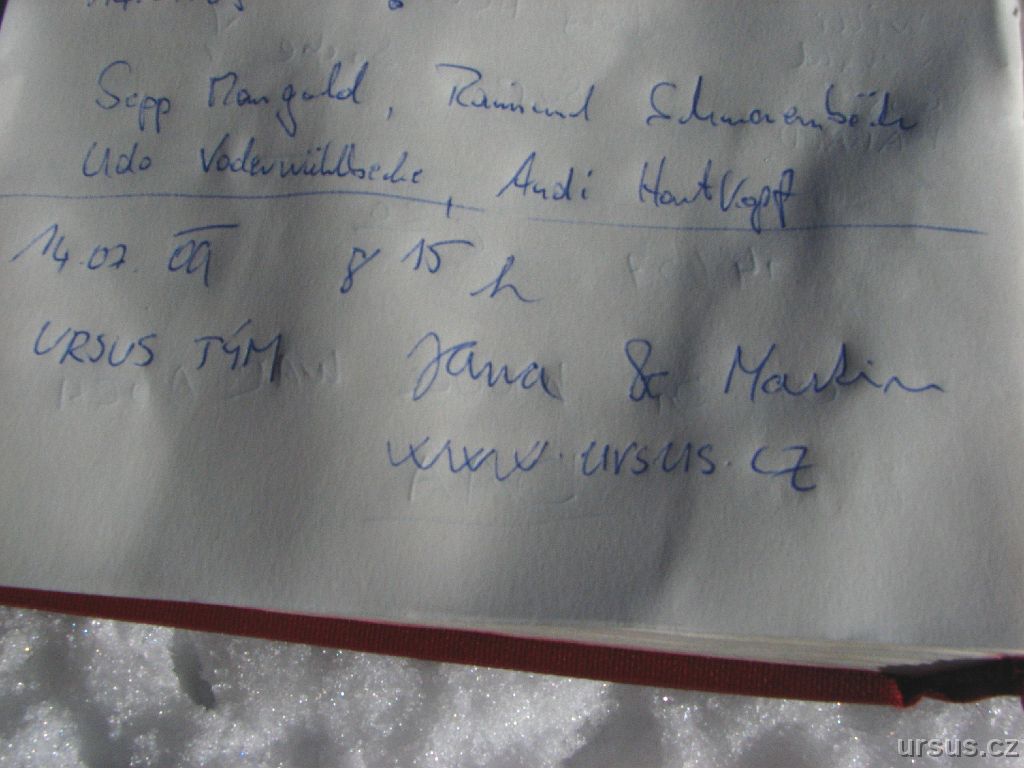 Sepp Mangold, Raimund
Udo Andi Hartkopf
14.07.09 8 15 h
URSUS TÝM Jana & Martin
www.ursus.cz
ursus.cz